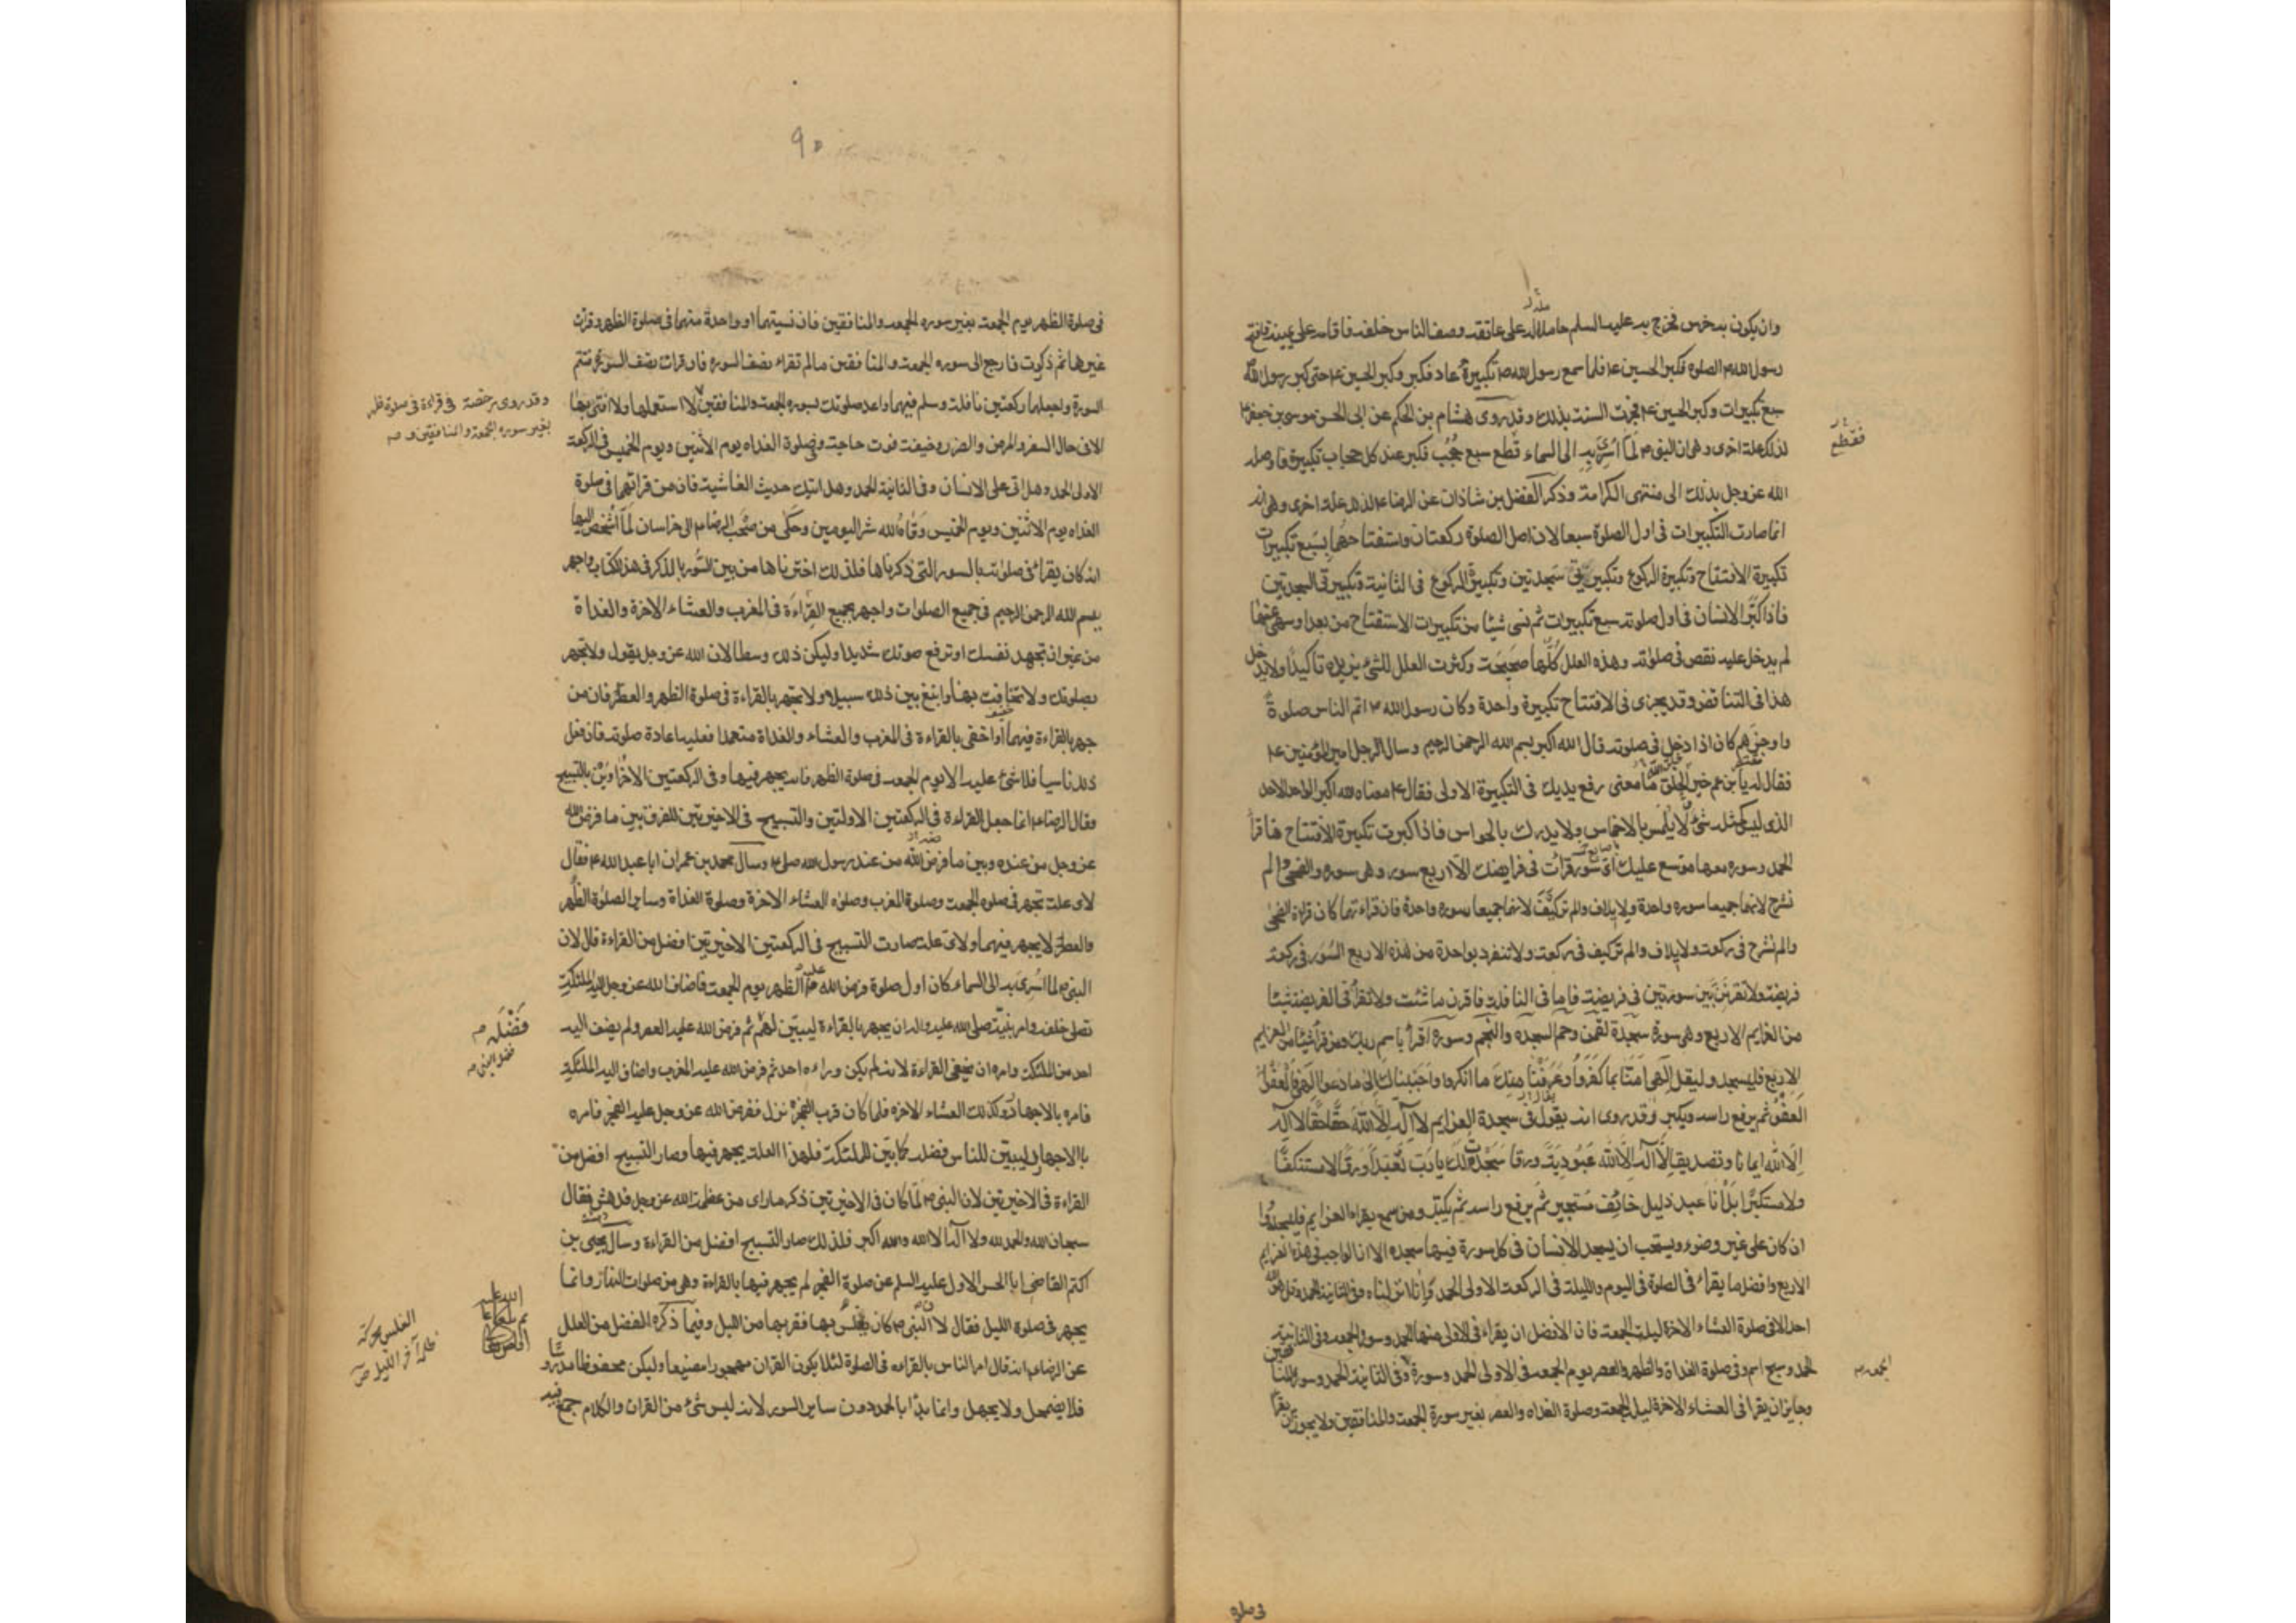 وان يكون به خرس فخرج به عليه السلم حاملا له على عاتقه وصف الناس خلفه فاقامه على يمينه فافتتح
رسول الله ص الصلوة فكبر الحسين ع فلما سمع رسول الله ص تكبيرة عاد فكبر وكبر الحسين ع حتى كبر رسول الله
سبع تكبيرات وكبر الحسين ع فجرت السنة بذلك وقد روى هشام بن الحكم عن ابى الحسن موسى بن جعفر ع
لذلك علة اخرى وهى ان النبى ص لما اسرى به الى السماء قطع سبع حجب فكبر عند كل حجاب تكبيرة فاوصله
فقطع
الله عز وجل بذلك الى منتهى الكرامة وذكر الفضل بن شاذان عن الرضا ع لذلك علة اخرى وهى انه
انما صارت التكبيرات فى اول الصلوة سبعا لان اصل الصلوة ركعتان واستفتاحهما بسبع تكبيرات
تكبيرة الافتتاح وتكبيرة الركوع وتكبيرتى سجدتين وتكبيرة الركوع فى الثانية وتكبيرتى السجدتين
فاذا كبر الانسان فى اول صلوته سبع تكبيرات ثم نسى شيئا من تكبيرات الاستفتاح من بعد او سهى عنها
لم يدخل عليه نقص فى صلوته وهذه العلل كلها صحيحة وكثرت العلل للشئ يزيده تاكيدا ولا يدخل
هذا فى التناقض وقد يجزى فى الافتتاح تكبيرة واحدة وكان رسول الله ص اتم الناس صلوة
واوجزهم كان اذا دخل فى صلوته قال الله اكبر بسم الله الرحمن الرحيم وسال الرجل امير المؤمنين ع
فقال له يا بن عم خير خلق الله ما معنى رفع يديك فى التكبيرة الاولى فقال ع معناه الله اكبر الواحد الاحد
الذى ليس كمثله شئ لا يلمس بالاخماس ولا يدرك بالحواس فاذا كبرت تكبيرة الافتتاح فاقرأ
الحمد وسورة معها موسع عليك اى سورة قرات فى فرايضك الا اربع سور وهى سوره والضحى والم
نشرح لانهما جميعا سوره واحدة ولايلاف والم تر كيف لانهما جميعا سوره واحدة فان قراءتهما كان قراءة الضحى
والم نشرح فى ركعة ولايلاف والم تر كيف فى ركعة ولا تنفرد بواحدة من هذه الاربع السور فى ركعة
فريضة ولا تقرنن بين سورتين فى فريضة فاما فى النافلة فاقرن ما شئت ولا تقرأ فى الفريضة شيئا
من العزايم الاربع وهى سورة سجدة لقمن وحم السجده والنجم وسوره اقرأ باسم ربك ومن قرأ شيئا من العزايم
الاربع فليسجد وليقل الهى امنا بما كفروا وعرفنا منك ما انكروا واجبناك الى ما دعوا الهى فالعفو
العفو ثم يرفع راسه ويكبر وقد روى انه يقول فى سجدة العزايم لا اله الا الله حقا حقا لا اله
الا الله ايمانا وتصديقا لا اله الا الله عبودية ورقا سجدت لك يارب تعبدا ورقا لا مستنكفا
ولا مستكبرا بل انا عبد ذليل خائف مستجير ثم يرفع راسه ثم يكبر ومن سمع يقراء العزايم فليسجد وا
ان كان على غير وضوء ويستحب ان يسجد الانسان فى كل سورة فيها سجده الا ان الواجب فى هذه العزايم
الاربع وافضل ما يقراء فى الصلوة فى اليوم والليلة فى الركعة الاولى الحمد وانا انزلناه وفى الثانية الحمد وقل هو الله
احد الا فى صلوة العشاء الاخرة ليلة الجمعة فان الافضل ان يقراء فى الاولى منها الحمد وسورة الجمعه وفى الثانية
الحمد وسبح اسم وفى صلوة الغداة والظهر والعصر يوم الجمعه فى الاولى الحمد وسورة وفى الثانية الحمد وسوره المنافقين
الجمعه ص
وجايز ان يقرا فى العشاء الاخرة ليلة الجمعة وصلوة الغداه والعصر بغير سورة الجمعة والمنافقين ولا يجوز ان يقرا
فى صلوة
٩٥
فى صلوة الظهر يوم الجمعة بغير سوره الجمعه والمنافقين فان نسيتهما او واحدة منهما فى صلوة الظهر وقرات
غيرهما ثم ذكرت فارجع الى سوره الجمعة والمنافقين ما لم تقراء نصف السوره فان قرات نصف السورة فتمم
السورة واجعلها ركعتين نافلة وسلم فيهما واعد صلوتك بسوره الجمعة والمنافقين
وقد روى رخصة فى قراءة فى صلوة ظهر
بغير سوره الجمعة والمنافقين ص
الا فى حال السفر والمرض والضرر وخيفة فوت حاجة وفى صلوة الغداه يوم الاثنين ويوم الخميس فى الركعة
الاولى الحمد وهل اتى على الانسان وفى الثانية الحمد وهل اتيك حديث الغاشية فان من قراهما فى صلوة
الغداه يوم الاثنين ويوم الخميس وقاه الله شر اليومين وحكى من صحب الرضا ع الى خراسان لما اشخص اليها
انه كان يقراء فى صلوته بالسور التى ذكرناها فلذلك اخترناها من بين السور بالذكر فى هذا الكتاب واجهر
ببسم الله الرحمن الرحيم فى جميع الصلوات واجهر بجميع القراءة فى المغرب والعشاء الاخرة والغداة
من غير ان تجهد نفسك او ترفع صوتك شديدا وليكن ذلك وسطا لان الله عز وجل يقول ولا تجهر
بصلوتك ولا تخافت بها وابتغ بين ذلك سبيلا ولا تجهر بالقراءة فى صلوة الظهر والعصر فان من
جهر بالقراءة فيهما او اخفى بالقراءة فى المغرب والعشاء والغداة متعمدا فعليه اعادة صلوته فان فعل
ذلك ناسيا فلا شئ عليه الا يوم الجمعه فى صلوة الظهر فانه يجهر فيها وفى الركعتين الاخراوين بالتسبيح
وقال الرضا ع انما جعل القراءة فى الركعتين الاولتين والتسبيح فى الاخيرتين للفرق بين ما فرض الله
عز وجل من عنده وبين ما فرض الله من عند رسول الله صلع وسال محمد بن عمران ابا عبد الله ع فقال
لاى علة تجهر فى صلوه الجمعة وصلوة المغرب وصلوة العشاء الاخرة وصلوة الغداة وساير الصلوة الظهر
والعصر لا يجهر فيهما ولاى علة صارت التسبيح فى الركعتين الاخيرتين افضل من القراءة قال لان
النبى ص لما اسرى به الى السماء كان اول صلوة فرض الله عليه الظهر يوم الجمعة فاضاف الله عز وجل اليه الملئكة
تصلى خلفه وامر نبيه صلى الله عليه واله ان يجهر بالقراءة ليبين لهم فضله ثم فرض الله عليه العصر ولم يضف اليه
فضله ص
احد من الملئكة وامره ان يخفى القراءة لانه لم يكن وراءه احد ثم فرض الله عليه المغرب واضاف اليه الملئكة
فامره بالاجهار وكذلك العشاء الاخره فلما كان قرب الفجر نزل ففرض الله عز وجل عليه الفجر فامره
بالاجهار ليبين للناس فضله كما بين للملئكة فلهذا العلة يجهر فيها وصار التسبيح افضل من
القراءة فى الاخيرتين لان النبى ص لما كان فى الاخيرتين ذكر ما راى من عظمة الله عز وجل فدهش فقال
سبحان الله والحمد لله ولا اله الا الله والله اكبر فلذلك صار التسبيح افضل من القراءة وسال يحيى بن
اكثم القاضى ابا الحسن الاول عليه السلم عن صلوة الفجر لم يجهر فيها بالقراءة وهى من صلوات النهار وانما
يجهر فى صلوة الليل فقال لان النبى ص كان يغلس بها فقربها من الليل وفيما ذكره الفضل من العلل
الغلس محركة
ظلمة آخر الليل ص
عن الرضا ع انه قال امر الناس بالقراءه فى الصلوة لئلا يكون القران مهجورا مضيعا وليكن محفوظا مدروسا
فلا يضمحل ولا يجهل وانما بدا بالحمد دون ساير السور لانه ليس شئ من القران والكلام جمع فيه